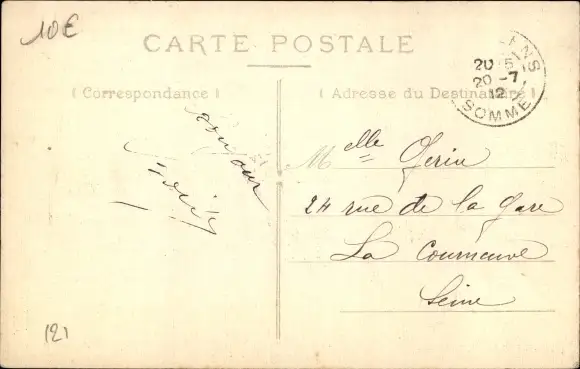 10€
CARTE POSTALE
( Correspondance )
( Adresse du Destinataire )
ANS
20 51
20 -7
12
SOMME
bonjour
Melle Gerin
24 rue de la Gare
La Courneuve
Seine
121